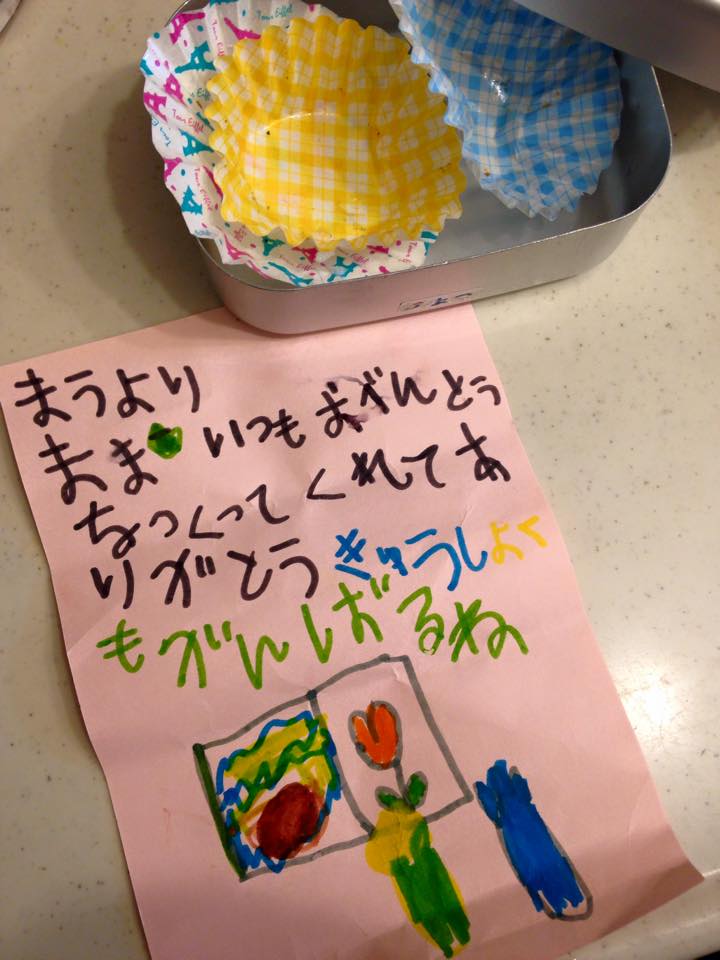 Tour Eiffel
Tour Eiffel
Tour Eiffel
まうより
まま いつも おべんとう
をつくってくれてあ
りがとう きゅうしょく
もがんばるね